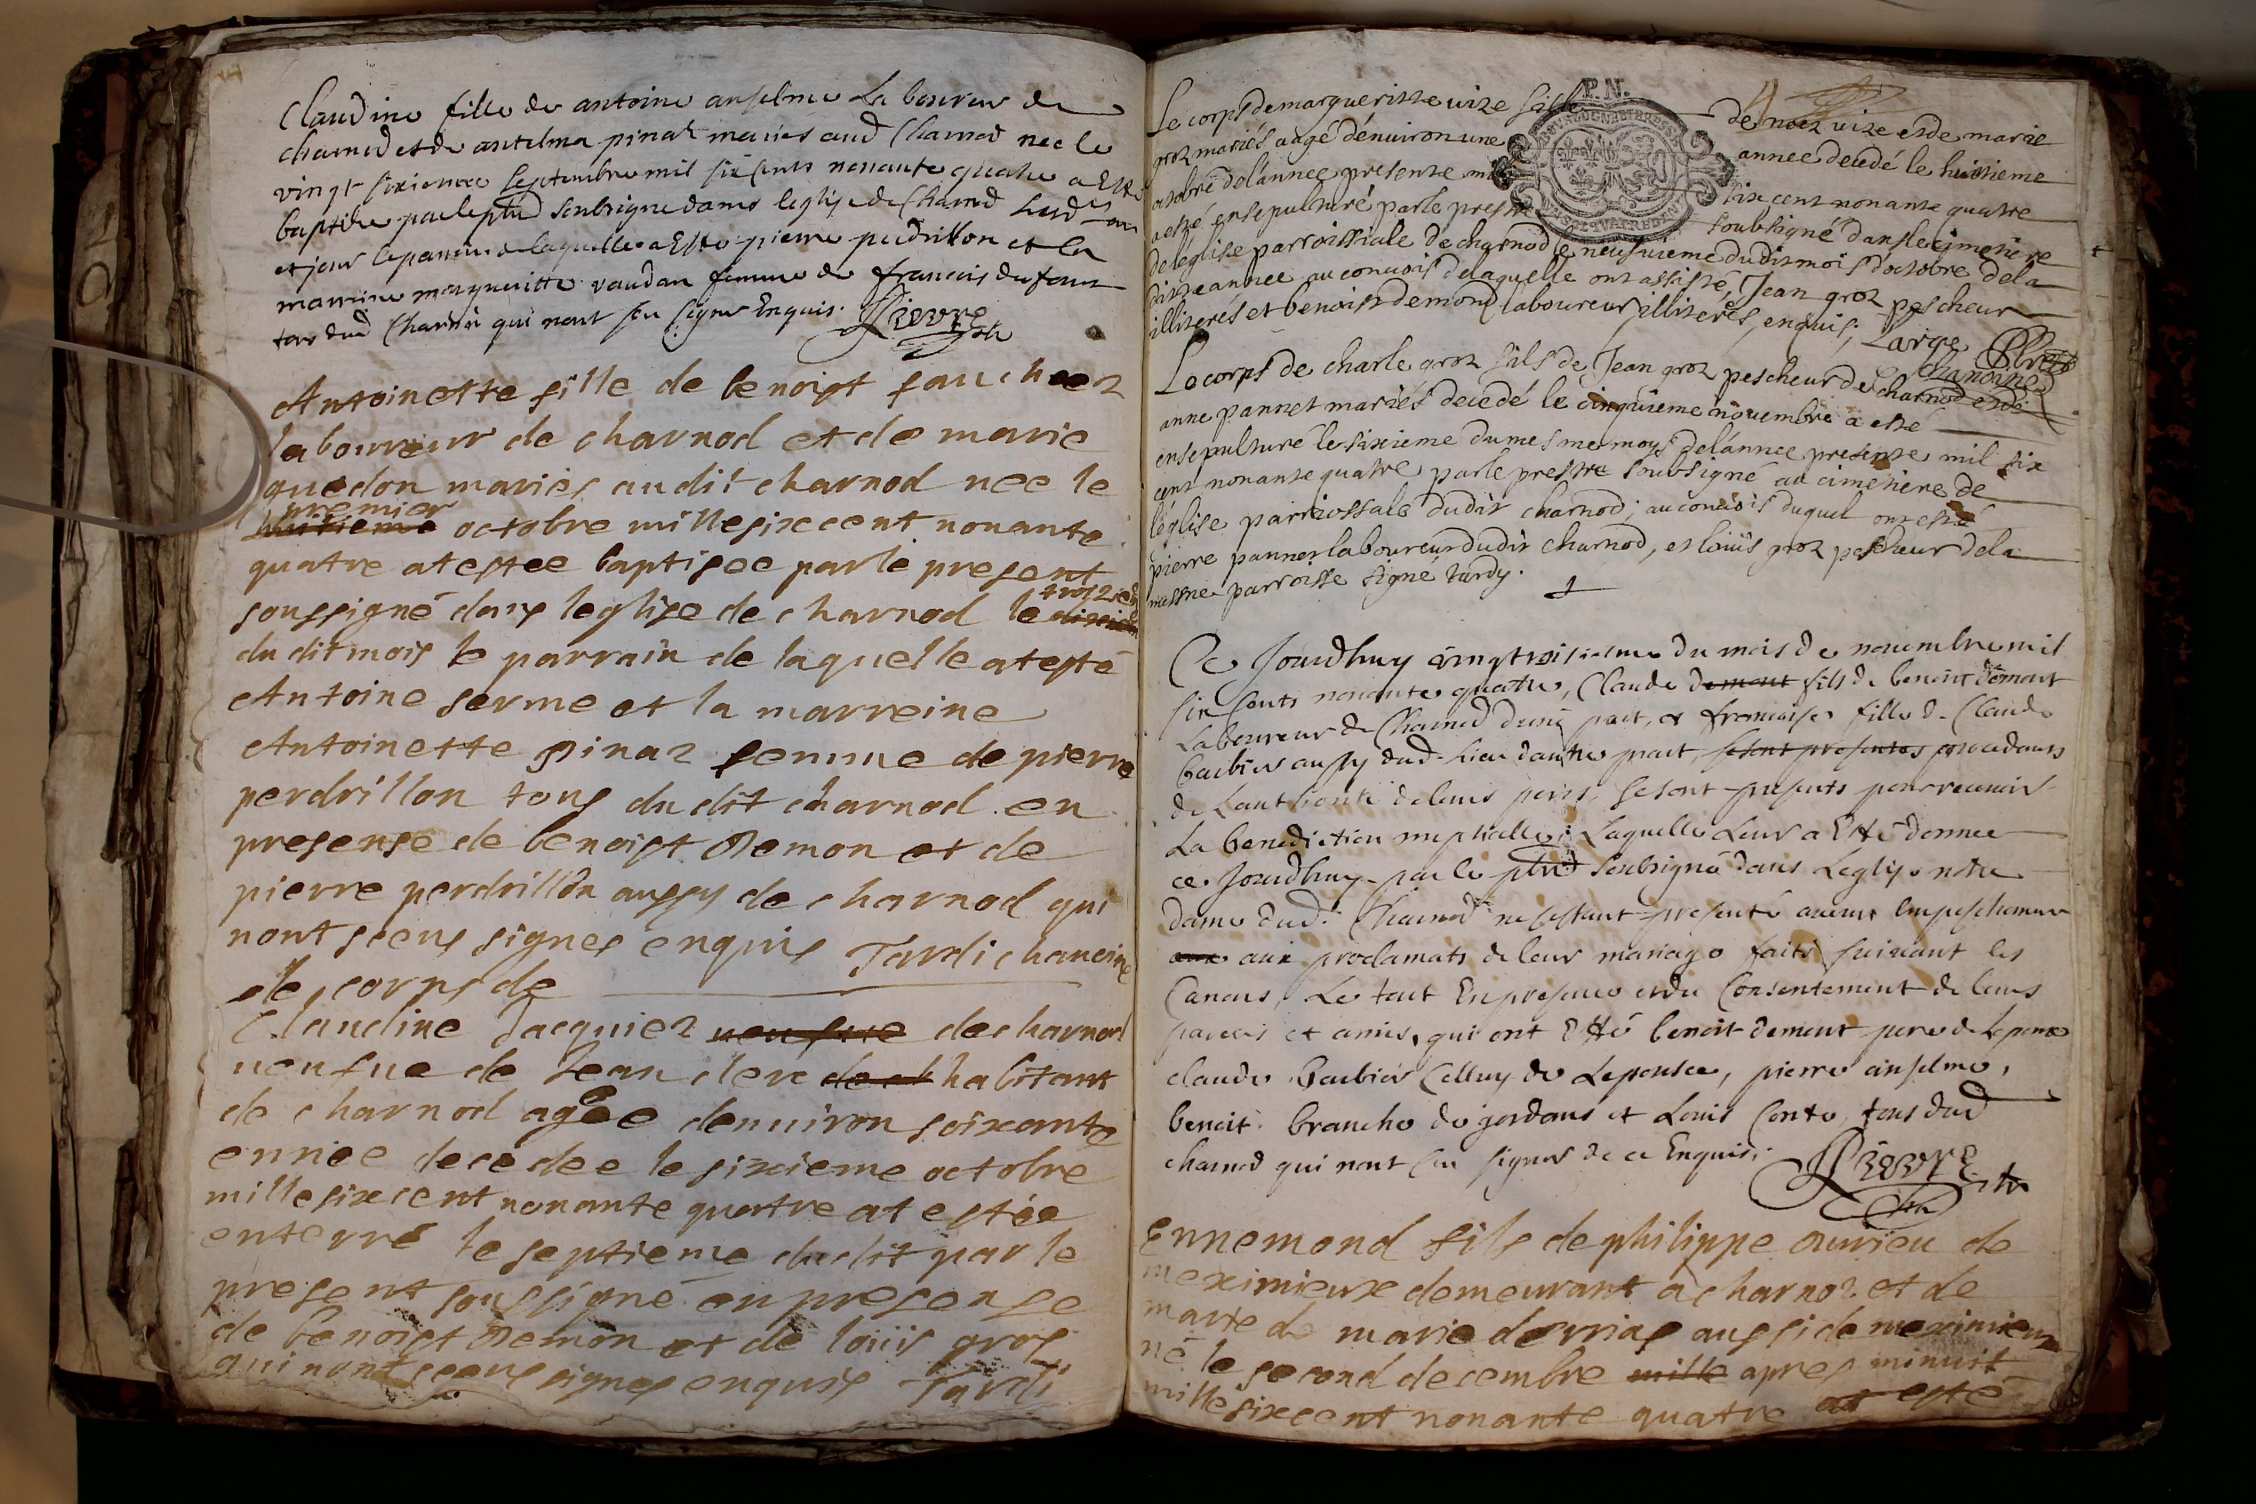 Claudine fille de antoine anselme Laboureur de
charnod et de antelma pinaz mariés aud Charnod nee le
vingt sixieme septembre mil six cents nonante quatre a Esté
baptisée par le ptre soubsigné dans leglise de Charnod lesd an
et jour le parrin de laquelle a Esté pierre perdrillon et la
marrine margueritte vaudan femme de francois dufour
tous dud Charnod qui nont sceu signer Enquis. Rievre
Antoinette fille de benoist fauchez
laboureur de charnod et de marie
quedon mariés audit charnod nee le
premier
huitieme octobre mille sixcent nonante
quatre at estee baptisee par le present
soussigné dans leglise de charnod le troizie
du dit mois le parrain de laquelle at esté
Antoine serme et la marreine
Antoinette pinaz femme de pierre
perdrillon tous du dit charnod en
presense de benoist Demon et de
pierre perdrillon aussy de charnod qui
nont sceus signes enquis Tardi chanoine
le corps de
Claudine Jacquiez neufue de charnod
neufue de Jean clerc de ch habitant
de charnod agée denuiron soixante
enniee decedee le sixieme octobre
mille sixcent nonante quatre at estée
enterré le septieme dudit par le
present soussigné en presense
de benoist Demon et de loüis gros
qui nont sceus signes enquis Tardi
P.N.
Le corps de margueritte vize fille de noez vize et de marie
groz mariés aagé dénuiron une annee decedé le huitieme
octobre de lánnee presente mil six cent nonante quatre
a esté ensepulturé par le prestre soubsigné dans le cimetiere
de léglise parroissiale de charnod le neufuieme dudit mois d'octobre de la
ditte annee au conuois de laquelle ont assisté, Jean groz pescheur
illiterés et benoist demond laboureur illiterés, enquis; Large Pbre
chanoine
Le corps de charle groz fils de Jean groz pescheur de charnod et de
anne pannet mariés decedé le cinquieme nouembre a esté
ensepulturé le sixieme du mesme moys de lánnee presente mil six
cent nonante quatre par le prestre soubsigné au cimetiere de
léglise parriossale dudit charnod; au conuois duquel ont esté
pierre pannet laboureur dudit charnod, et loüis groz pescheur de la
mesme parroisse signé tardy.
Ce Jourdhuy vingtroisieme du mois de nouembre mil
six cents nonante quatre, Claude demont fils de benoit demont
Laboureur de Charnod dune part, et francoise fille de Claude
barbier aussy dud. lieu dautre part, se sont presentes procedants
de Lauthorité de leurs peres, se sont presents pour receuoir
La benediction nuptialle; Laquelle Leur a Esté donnee
ce Jourdhuy par le ptre soubsigné dans Leglise notre
dame dud. Charnod ne sestant presenté aucun Empeschement
aux proclamats de leur mariage faits suiuant les
Canons, Le tout En presence et du Consentement de leurs
parens et amis, qui ont Esté benoit demont pere de Lepoux
claude barbier Celluy de Lepousee, pierre anselme,
benoit branche de jordans et Louis Conte, tous dud
charnod qui nont sceu signer de ce Enquis. Rievre
Ennemond fils de philippe Ourieu de
meximieux demeurant a charnoz et de
marie de marie derrias aussi de meximieux
né le second decembre mille apres minuit
mille sixcent nonante quatre at esté